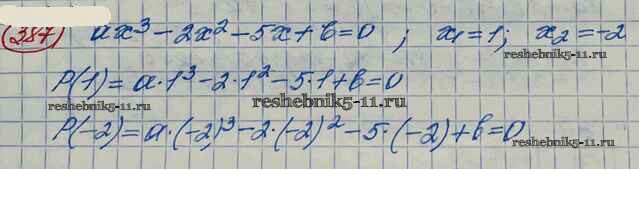 (387) ax³ - 2x² - 5x + b = 0 ; x₁ = 1; x₂ = -2
P(1) = a·1³ - 2·1² - 5·1 + b = 0
reshebnik5-11.ru reshebnik5-11.ru
P(-2) = a·(-2)³ - 2·(-2)² - 5·(-2) + b = 0
reshebnik5-11.ru